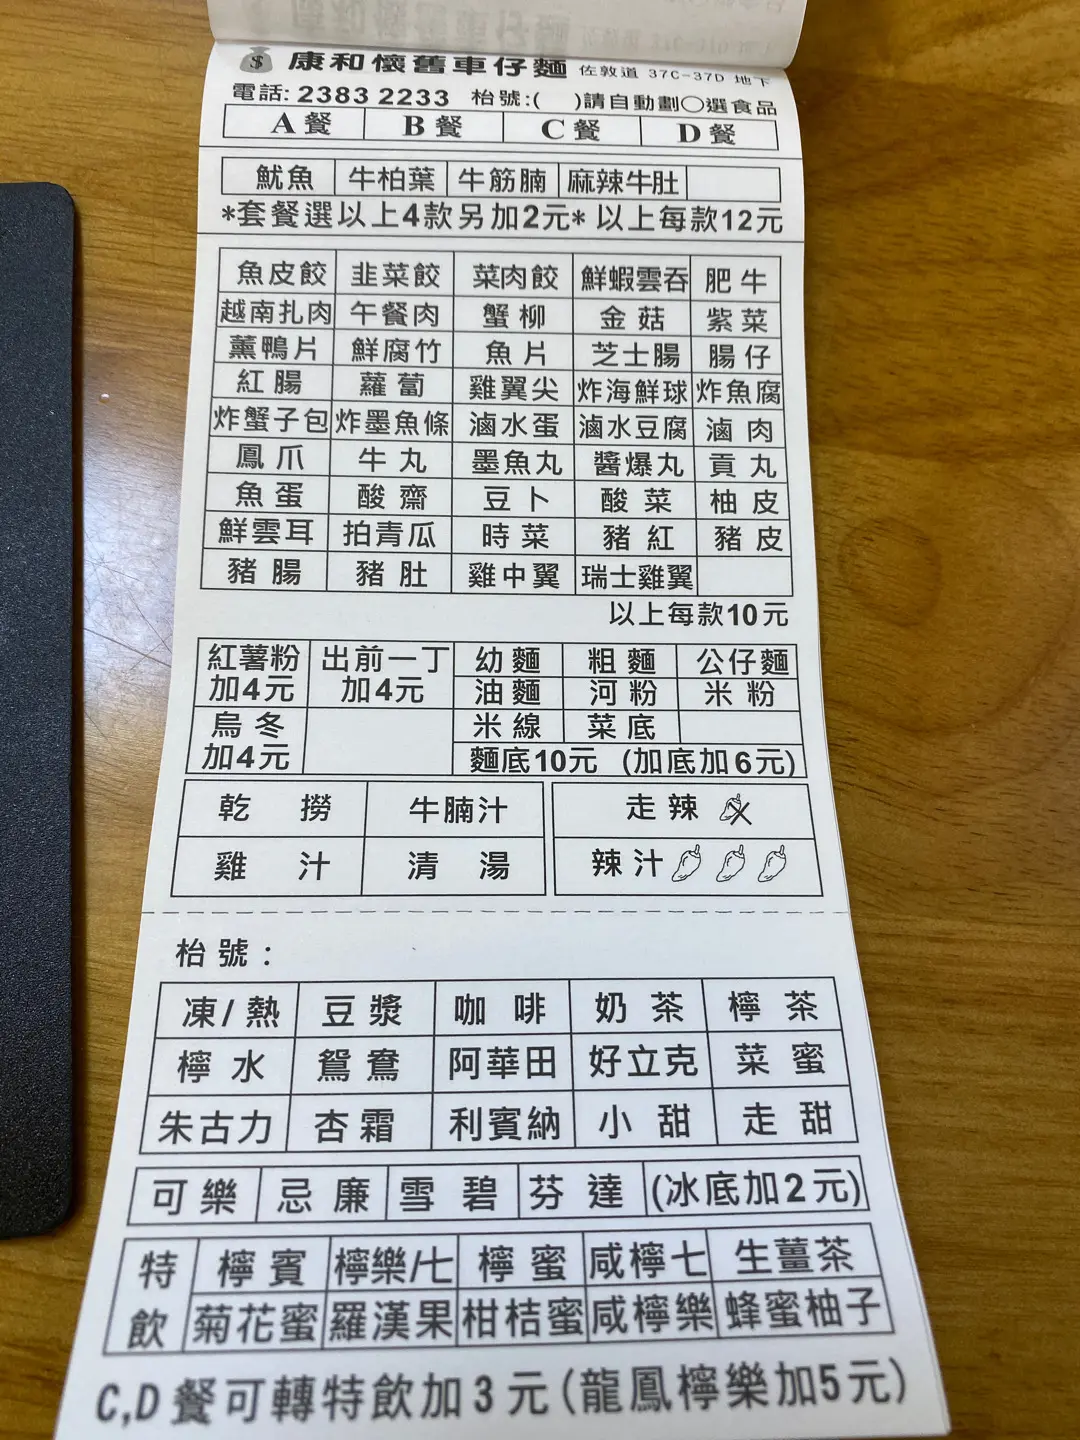 康和懷舊車仔麵 佐敦道 37C-37D 地下
電話: 2383 2233 枱號:( )請自動劃○選食品
A 餐 B 餐 C 餐 D 餐
魷魚 牛柏葉 牛筋腩 麻辣牛肚
*套餐選以上4款另加2元* 以上每款12元
魚皮餃 韭菜餃 菜肉餃 鮮蝦雲吞 肥牛
越南扎肉 午餐肉 蟹柳 金菇 紫菜
薰鴨片 鮮腐竹 魚片 芝士腸 腸仔
紅腸 蘿蔔 雞翼尖 炸海鮮球 炸魚腐
炸蟹子包 炸墨魚條 滷水蛋 滷水豆腐 滷肉
鳳爪 牛丸 墨魚丸 醬爆丸 貢丸
魚蛋 酸齋 豆卜 酸菜 柚皮
鮮雲耳 拍青瓜 時菜 豬紅 豬皮
豬腸 豬肚 雞中翼 瑞士雞翼
以上每款10元
紅薯粉 出前一丁 幼麵 粗麵 公仔麵
加4元 加4元 油麵 河粉 米粉
烏冬 米線 菜底
加4元 麵底10元 (加底加6元)
乾撈 牛腩汁 走辣
雞汁 清湯 辣汁
枱號:
凍/熱 豆漿 咖啡 奶茶 檸茶
檸水 鴛鴦 阿華田 好立克 菜蜜
朱古力 杏霜 利賓納 小甜 走甜
可樂 忌廉 雪碧 芬達 (冰底加2元)
特飲 檸賓 檸樂/七 檸蜜 咸檸七 生薑茶
菊花蜜 羅漢果 柑桔蜜 咸檸樂 蜂蜜柚子
C,D 餐可轉特飲加3元(龍鳳檸樂加5元)